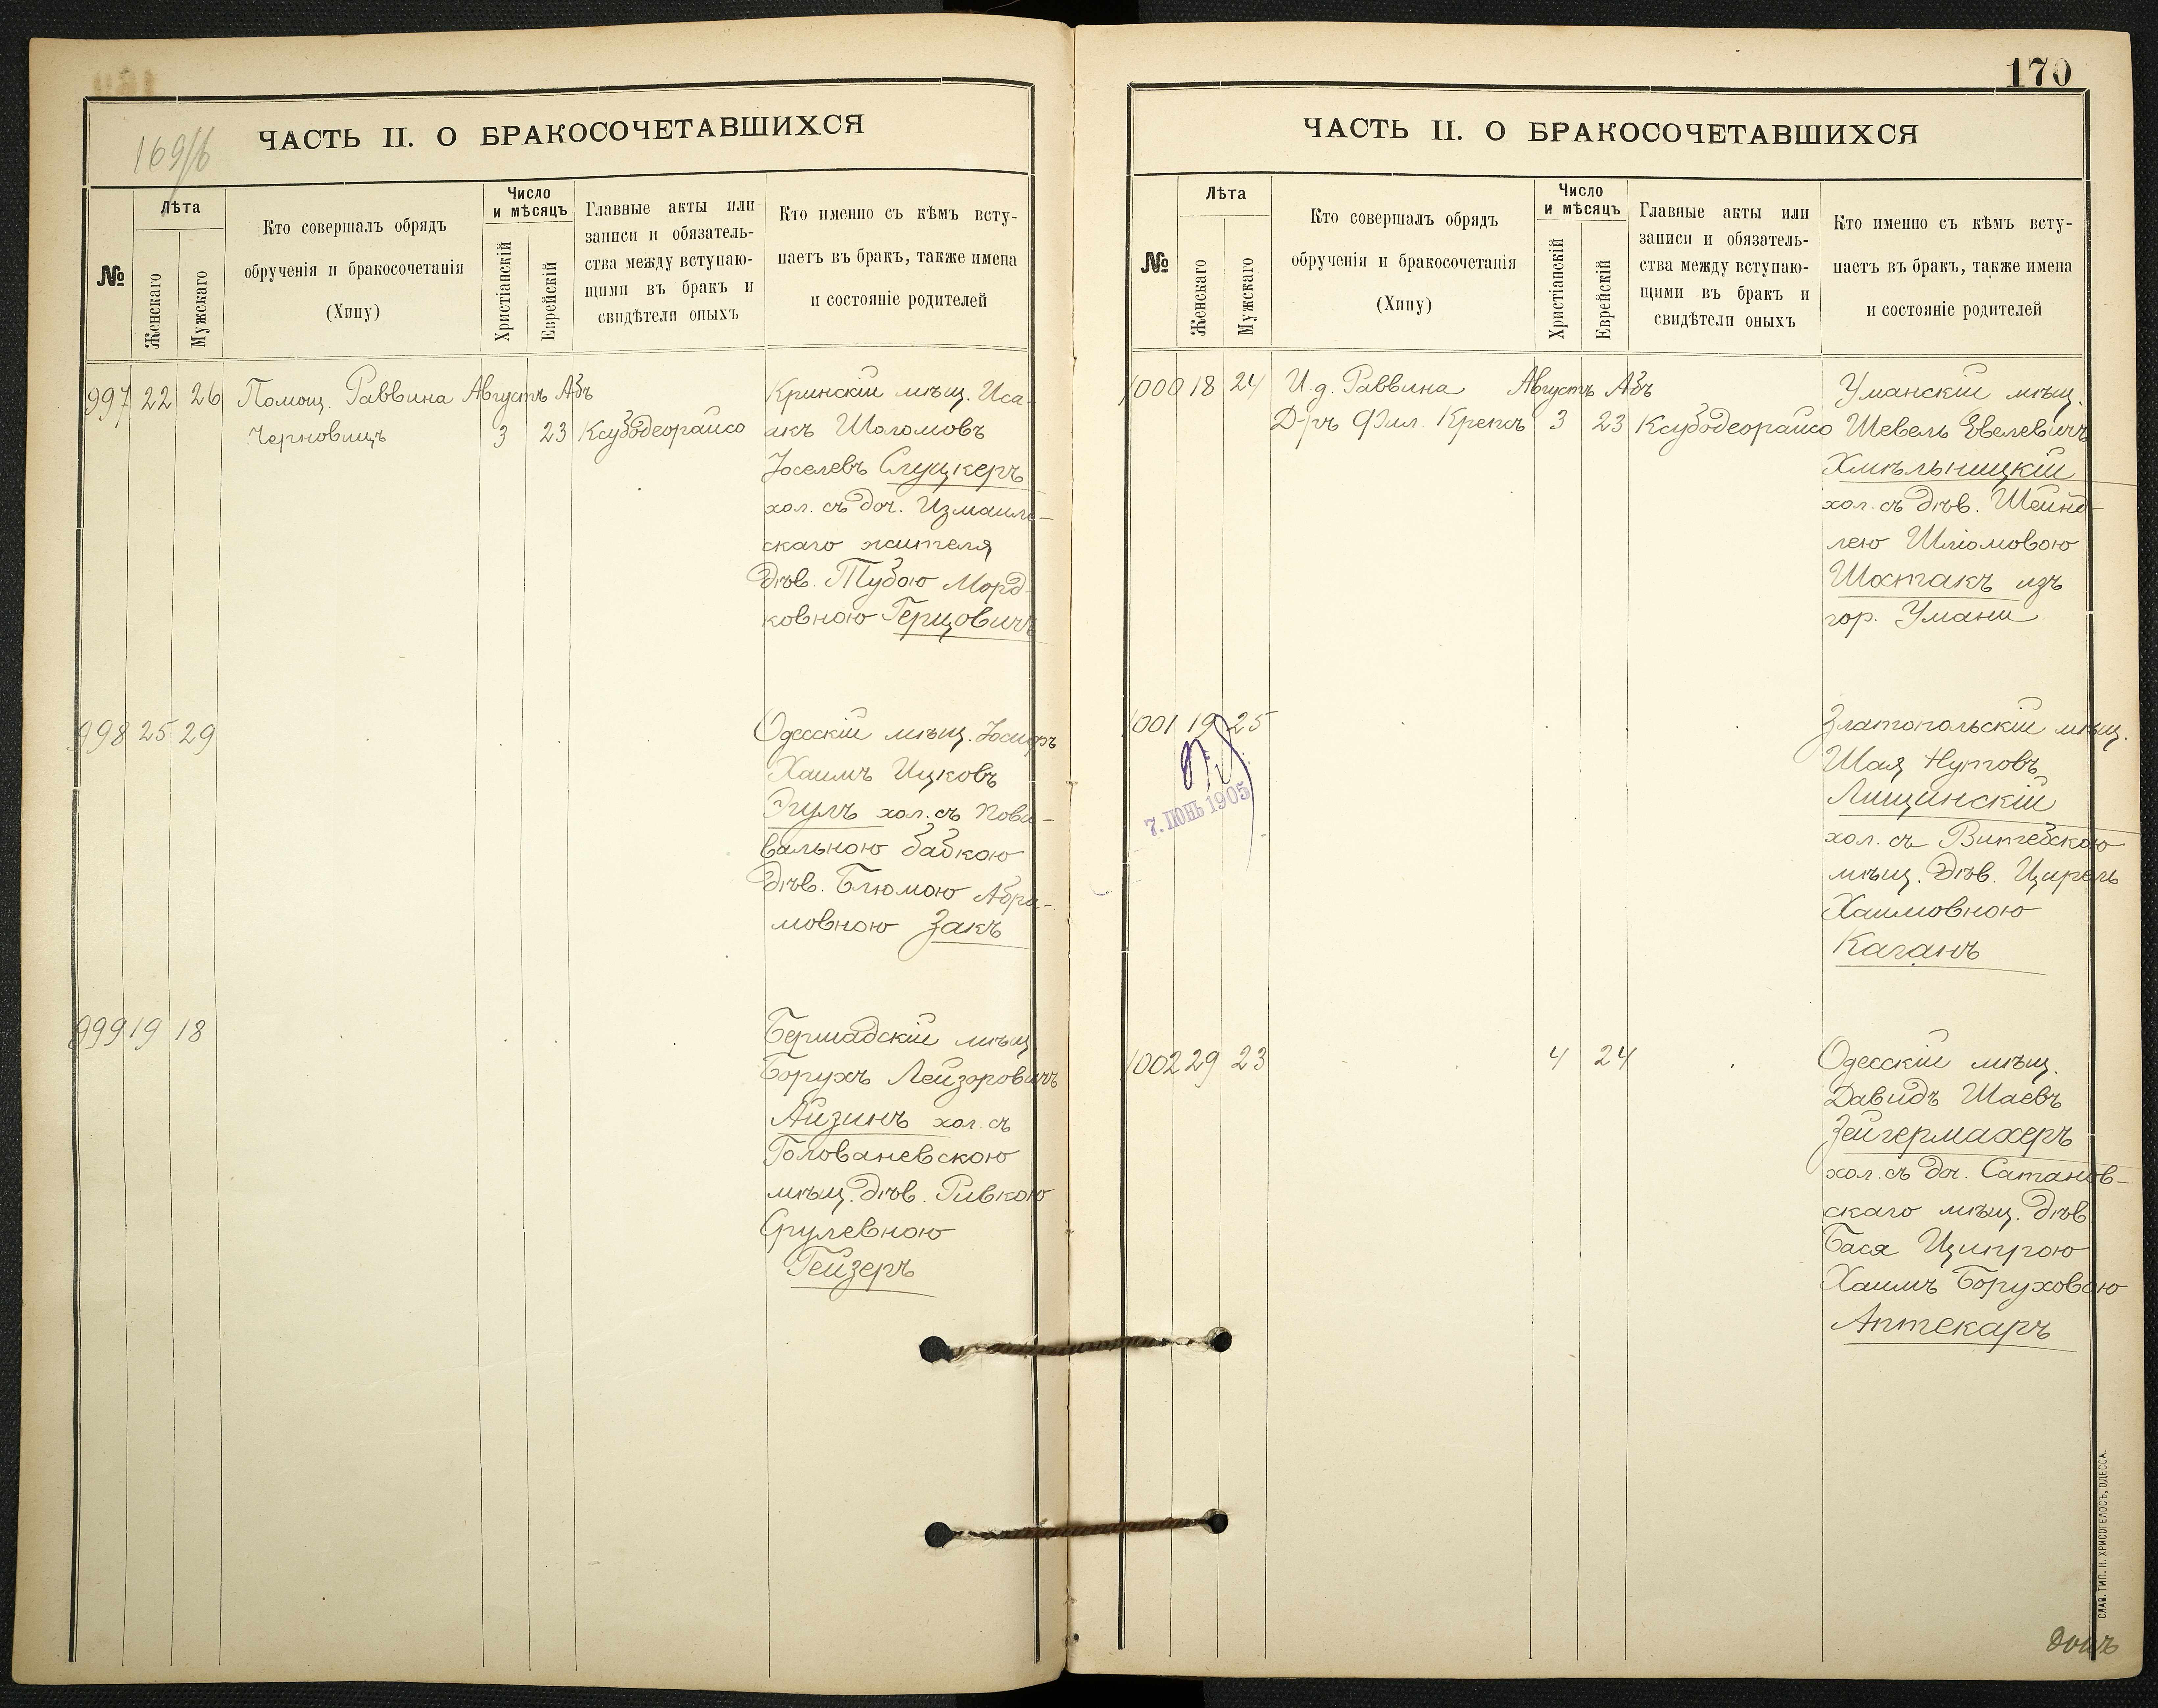 169/б
ЧАСТЬ II. О БРАКОСОЧЕТАВШИХСЯ
№
Лѣта
Женскаго
Мужскаго
Кто совершалъ обрядъ
обрученія и бракосочетанія
(Хипу)
Число
и мѣсяцъ
Христіанскій
Еврейскій
Главные акты или
записи и обязатель-
ства между вступаю-
щими въ бракъ и
свидѣтели оныхъ
Кто именно съ кѣмъ всту-
паетъ въ бракъ, также имена
и состояніе родителей
997 22 26 Помощ. Раввина Августъ Абъ
Черновицъ 3 23 Ксубодеорайсо
Кринскій мѣщ. Иса-
акъ Шоломовъ
Іоселевъ Слуцкеръ
хол. съ доч. Измаиль-
скаго жителя
дѣв. Тубою Морд-
ковною Герцовичъ
998 25 29
Одесскій мѣщ. Іосифъ
Хаимъ Ицковъ
Эгулъ хол. съ пови-
вальною бабкою
дѣв. Блюмою Абра-
мовною Закъ
999 19 18
Бершадскій мѣщ.
Борухъ Лейзоровичъ
Айзинъ хол. съ
Голованевскою
мѣщ. дѣв. Ривкою
Срулевною
Гейзеръ
170
ЧАСТЬ II. О БРАКОСОЧЕТАВШИХСЯ
№
Лѣта
Женскаго
Мужскаго
Кто совершалъ обрядъ
обрученія и бракосочетанія
(Хипу)
Число
и мѣсяцъ
Христіанскій
Еврейскій
Главные акты или
записи и обязатель-
ства между вступаю-
щими въ бракъ и
свидѣтели оныхъ
Кто именно съ кѣмъ всту-
паетъ въ бракъ, также имена
и состояніе родителей
1000 18 24 И.д. Раввина Августъ Абъ
Д-ръ Фил. Крепсъ 3 23 Ксубодеорайсо
Уманскій мѣщ.
Шевель Евелевичъ
Хмѣльницкій
хол. съ дѣв. Шейнд-
лею Шліомовою
Шостакъ изъ
гор. Умани
1001 19 25
7. ІЮНЬ 1905
Златопольскій мѣщ.
Шая Нутовъ
Лищинскій
хол. съ Витебскою
мѣщ. дѣв. Цирель
Хаимовною
Каганъ
1002 29 23 4 24
Одесскій мѣщ.
Давидъ Шаевъ
Зейгермахеръ
хол. съ доч. Сатанов-
скаго мѣщ. дѣв.
Бася Ципрою
Хаимъ Боруховою
Аптекаръ
СЛАВ. ТИП. Н. ХРИСОГЕЛОСЪ, ОДЕССА.